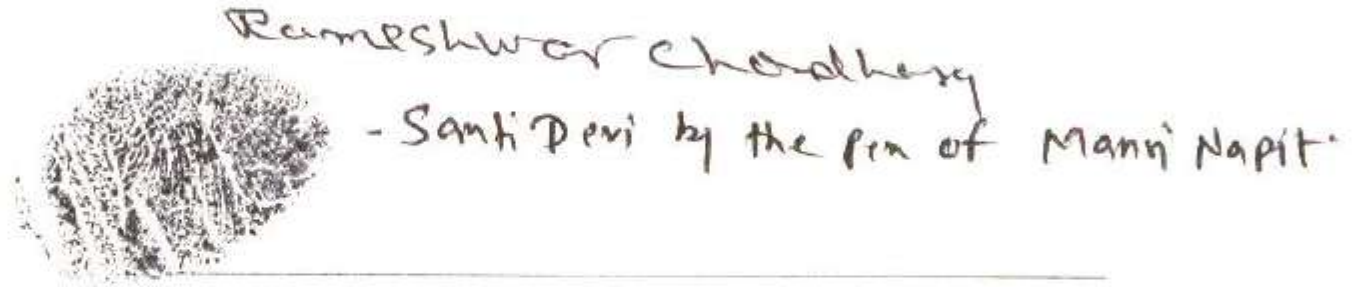 Rameshwar Chowdhary
- Santi Devi by the pen of Manni Napit.